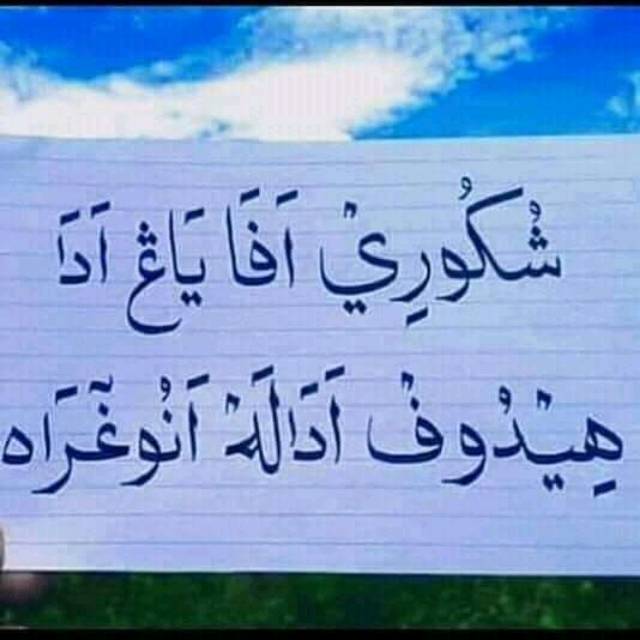 شُكُورِيْ اَفَا يَاڠ اَدَا
هِيْدُوفْ اَدَالَهْ اَنُوغٓرَاه